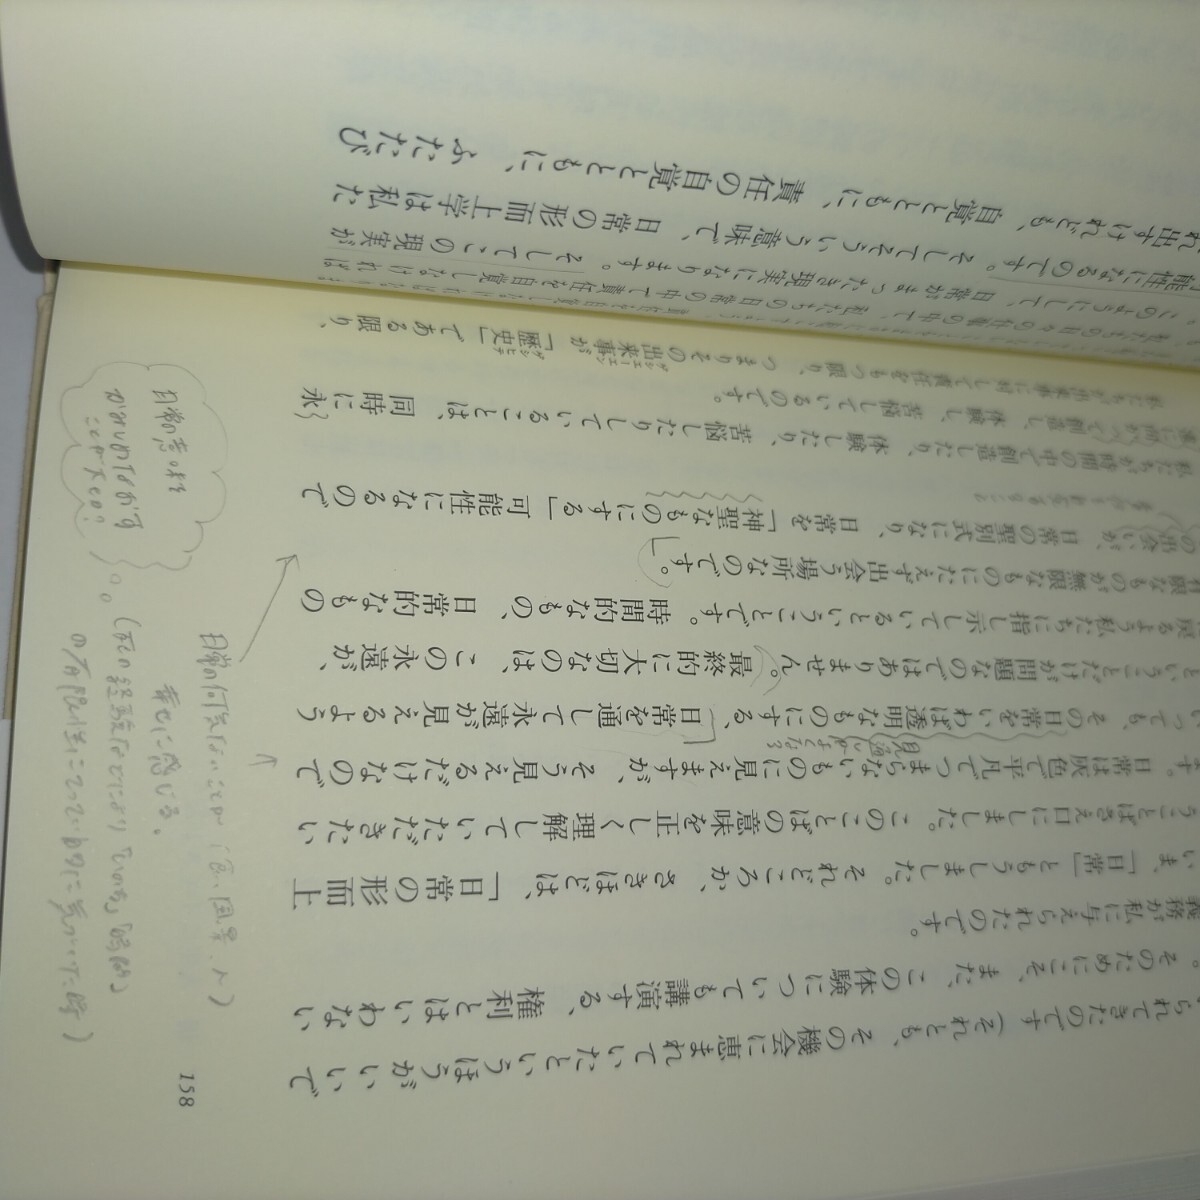 られてきたのです（それとも、その機会に恵まれていたというほうがいいで
。そのためにこそ、また、この体験についても講演する、権利とはいわない
義務が私に与えられたのです。
いま、「日常」ともうしました。それどころか、さきほどは、「日常の形而上
うことばさえ口にしました。このことばの意味を正しく理解していただきたい
す。日常は灰色で平凡でつまらないものに見えますが、そう見えるだけなので
いっても、その日常をいわば透明なものにする、日常を通して永遠が見えるよう
ということだけが問題なのではありません。最終的に大切なのは、この永遠が、
戻るよう私たちに指し示しているということです。時間的なもの、日常的なもの
限なものが無限なものにたえず出会う場所なのです。
の出会いが、日常の聖別式になり、日常を「神聖なものにする」可能性になるので
私たちが時間の中で創造したり、体験したり、苦悩したりしていることは、同時に永
遠に向かって創造し、体験し、苦悩しているのです。
私たちが出来事に対して責任をもつ限り、つまりその出来事が「歴史」である限り、
158
日常の何気ないことが（空、風景、人）
幸せに感じる。
日常の意味を
ことが大切！
の中で責任を自覚しなければ
このようにして、日常がまったき現実になります。そしてこの現実が
可能性になるのです。そしてそういう意味で、日常の形而上学は私た
れ出すけれども、自覚とともに、責任の自覚とともに、ふたたび